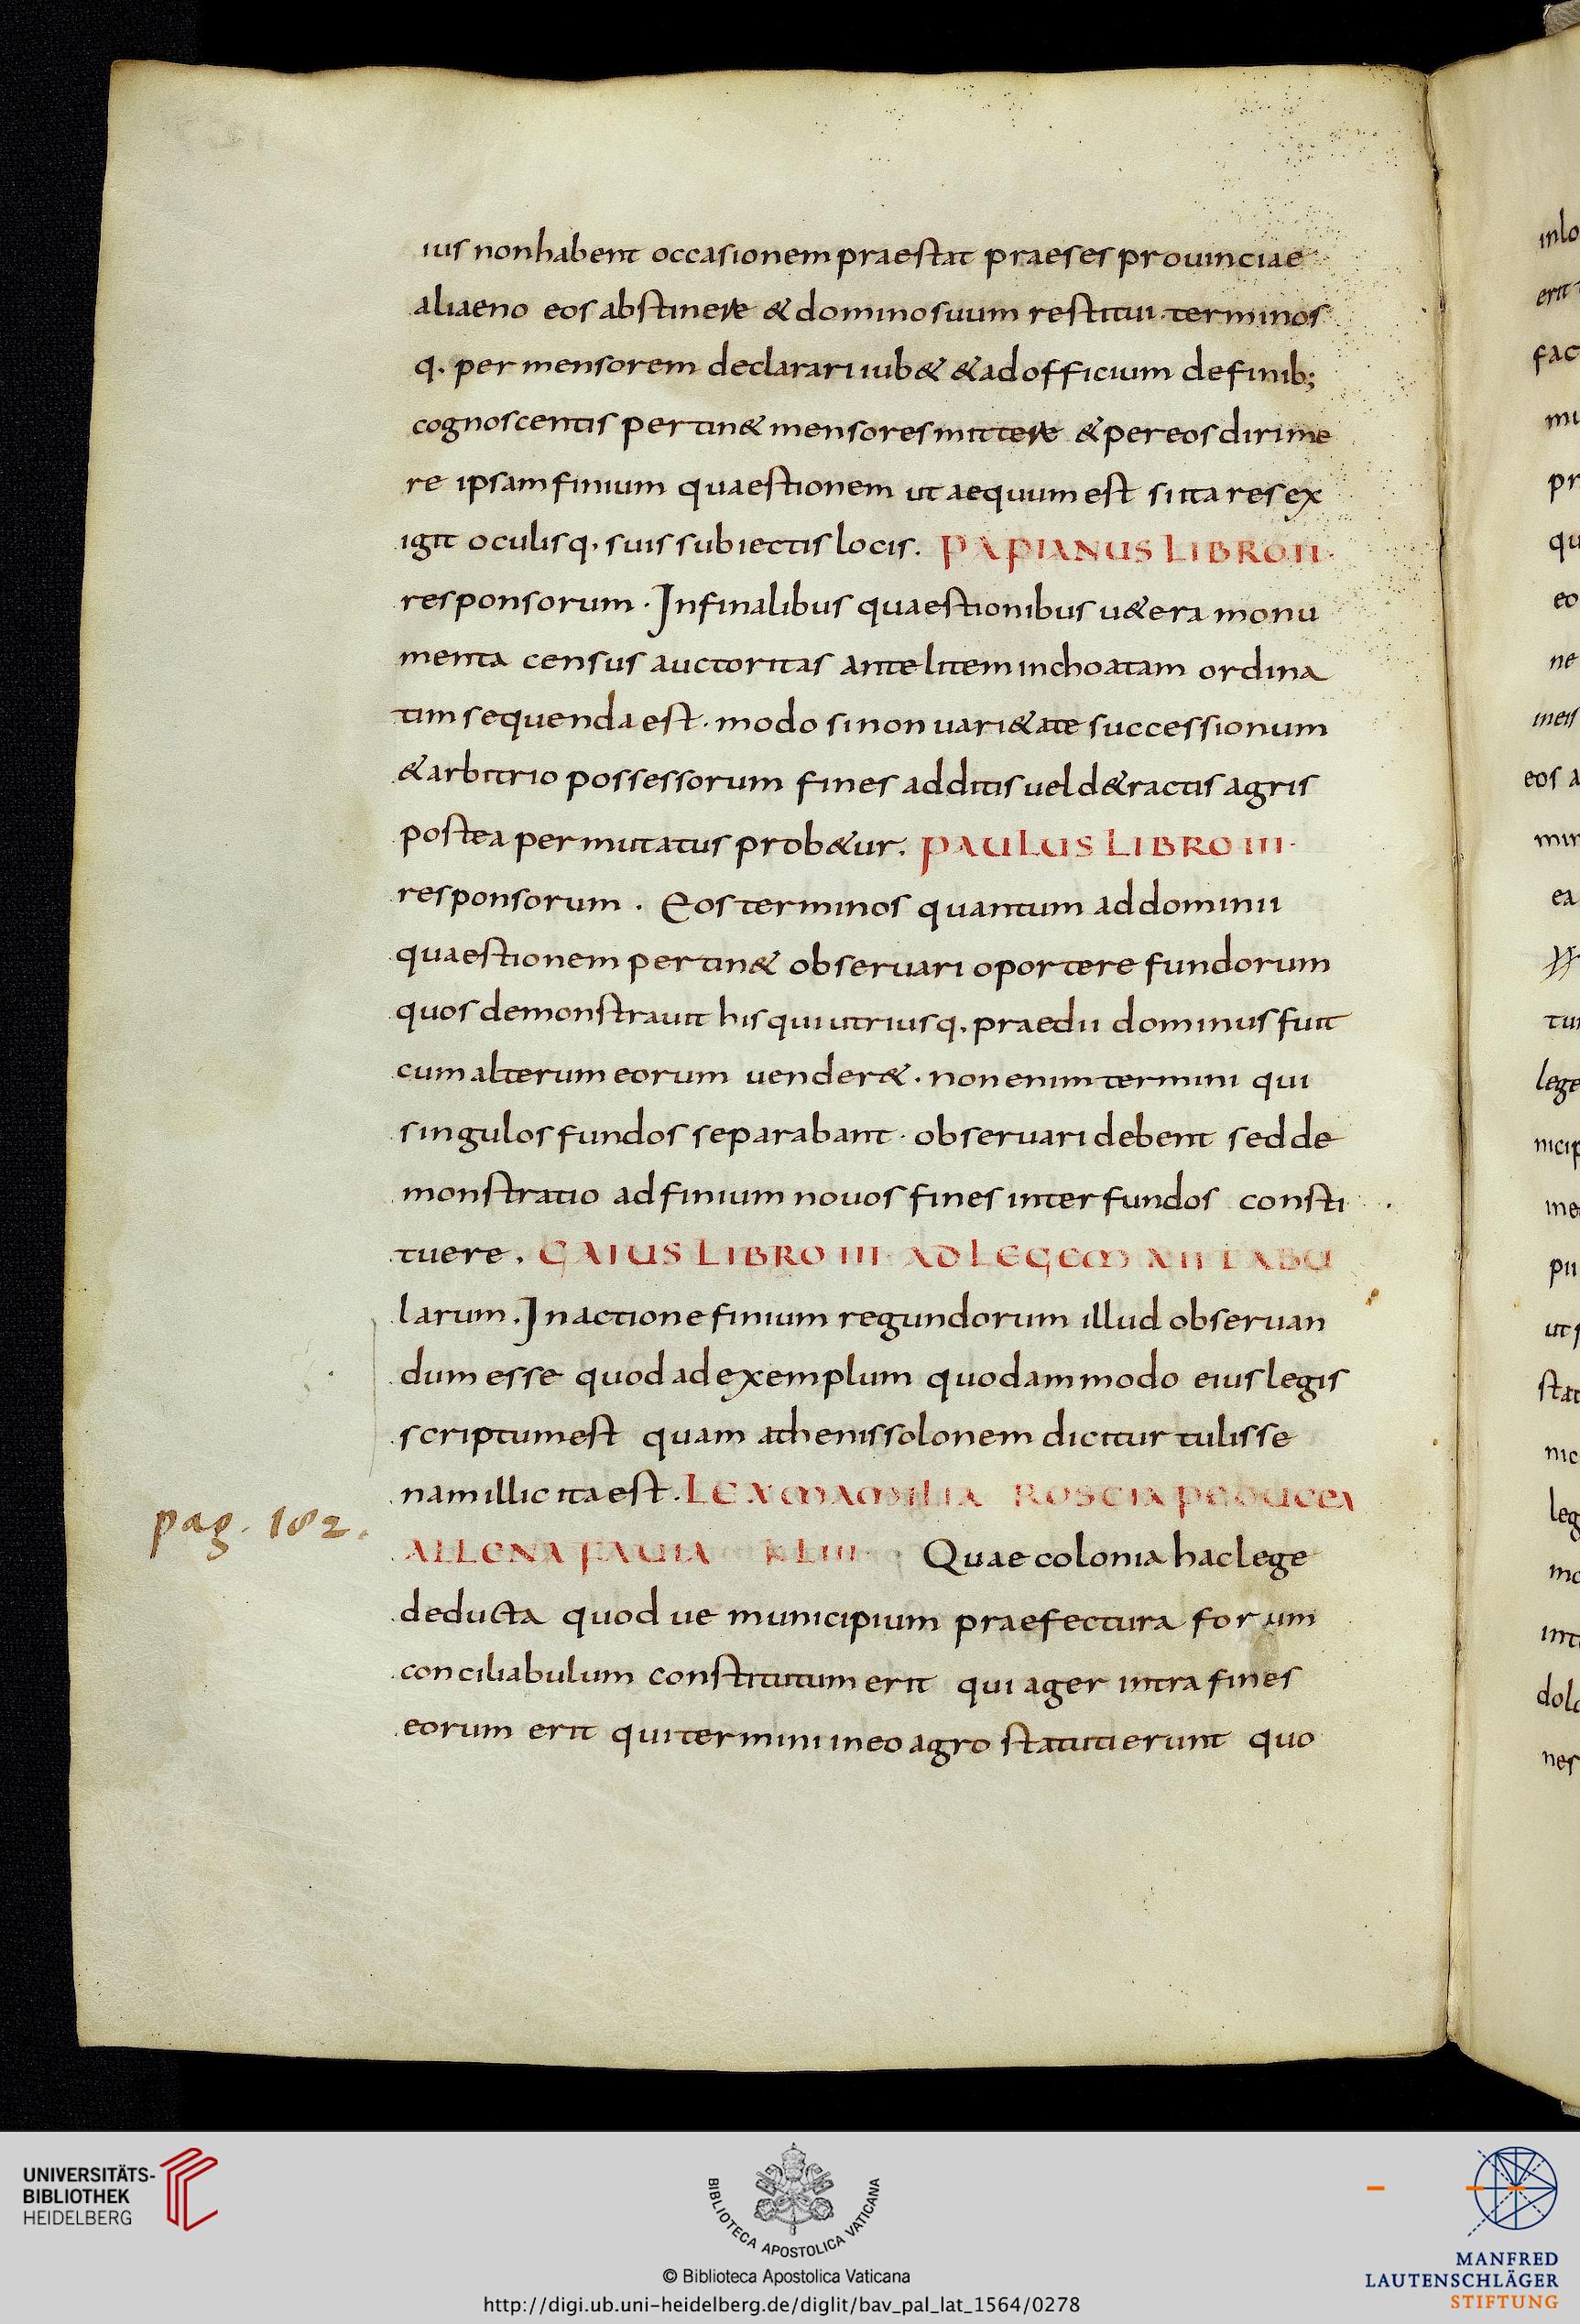 ius non habent occasionem praestat praeses prouinciae
aliaeno eos abstinere & domino suum restitui terminos
q. per mensorem declarari iub& & ad officium de finib;
cognoscentis pertin& mensores mittere & per eos dirime
re ipsam finium quaestionem ut aequum est si ita res ex
igit oculisq. suis subiectis locis. PAPIANUS LIBRO II.
responsorum. In finalibus quaestionibus u&era monu
menta census auctoritas ante litem inchoatam ordina
tim sequenda est. modo si non uari&ate successionum
& arbitrio possessorum fines additis uel d&ractis agris
postea permutatus prob&ur. PAULUS LIBRO III.
responsorum. Eos terminos quantum ad dominii
quaestionem pertin& obseruari oportere fundorum
quos demonstrauit his qui utriusq. praedii dominus fuit
cum alterum eorum uender&. non enim termini qui
singulos fundos separabant. obseruari debent sed de
monstratio adfinium nouos fines inter fundos consti
tuere. GAIUS LIBRO III. AD LEGEM XII TABU
larum. In actione finium regundorum illud obseruan
dum esse quod ad exemplum quodammodo eius legis
scriptum est quam athenis solonem dicitur tulisse
nam illic ita est. LEX MAMILIA ROSCIA PEDUCEA
pag. 182.
ALLENA FAUIA KLIII. Quae colonia hac lege
deducta quod ue municipium praefectura forum
conciliabulum constitutum erit qui ager intra fines
eorum erit qui termini in eo agro statuti erunt quo
inlo
erit
fac
mu
pr
qu
eo
ne
mens
eos a
min
ea
tur
lege
nicip
me
pii
ut
stat
nic
leg
mo
int
dolo
nes
UNIVERSITÄTS-
BIBLIOTHEK
HEIDELBERG
BIBLIOTECA APOSTOLICA VATICANA
© Biblioteca Apostolica Vaticana
http://digi.ub.uni-heidelberg.de/diglit/bav_pal_lat_1564/0278
MANFRED
LAUTENSCHLÄGER
STIFTUNG